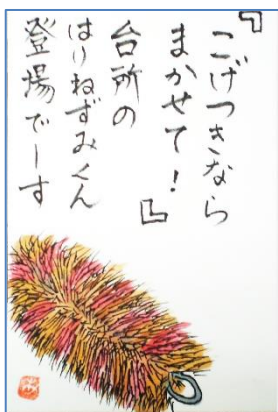 『こげつきなら
まかせて！』
台所の
はりねずみくん
登場でーす